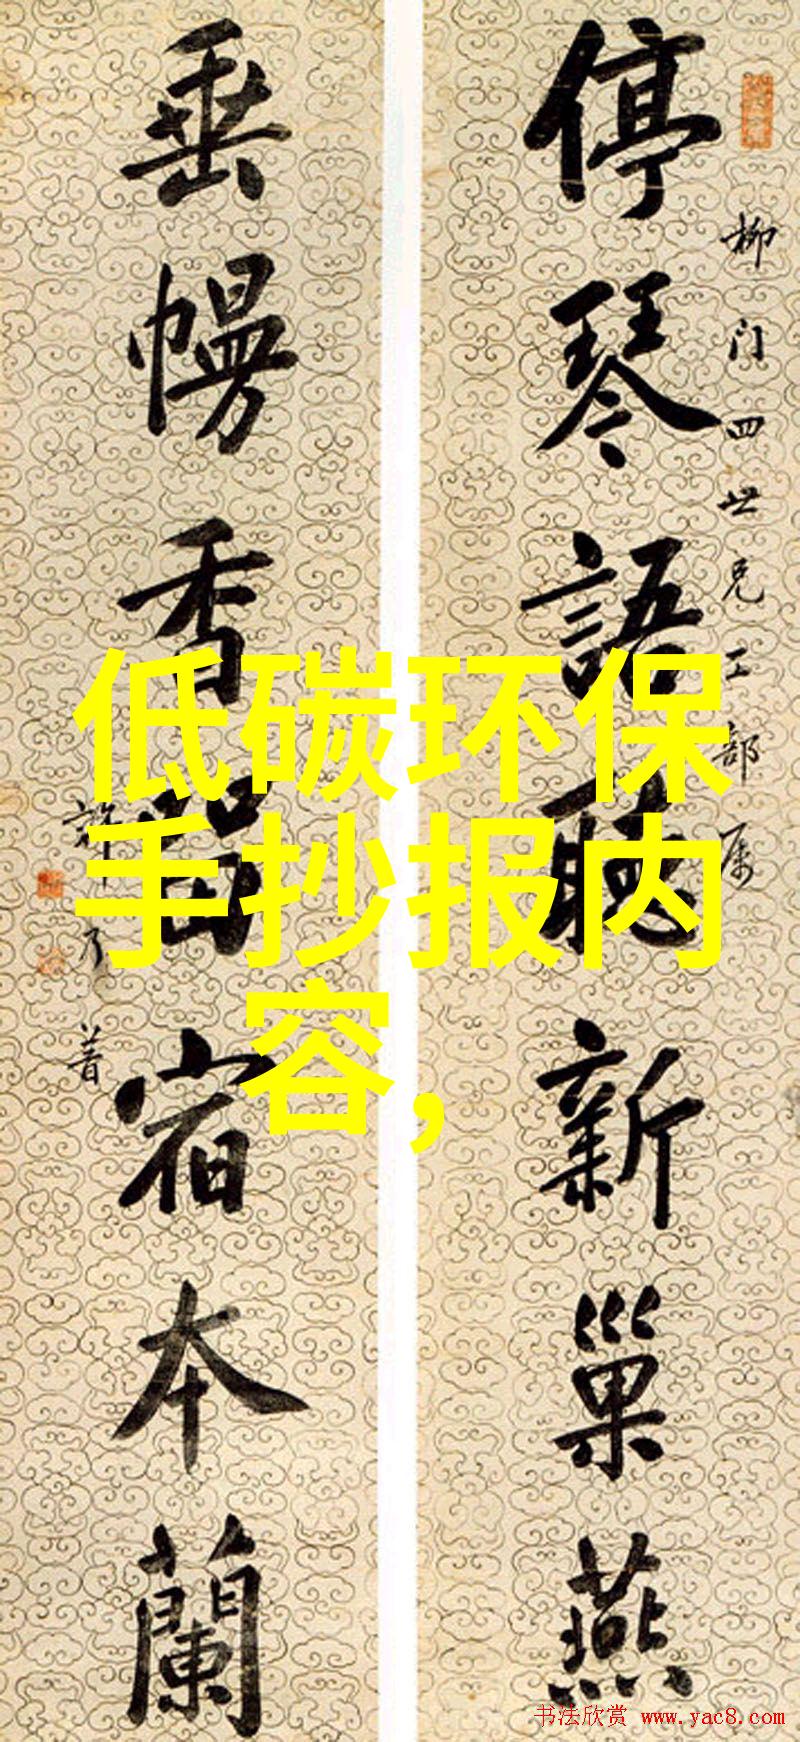 柳门四世兄工部属
停琴語聽新巢燕
垂幔香留宿本蘭
許乃普
低碳环保
手抄报内
容，
书法欣赏 www.yac8.com